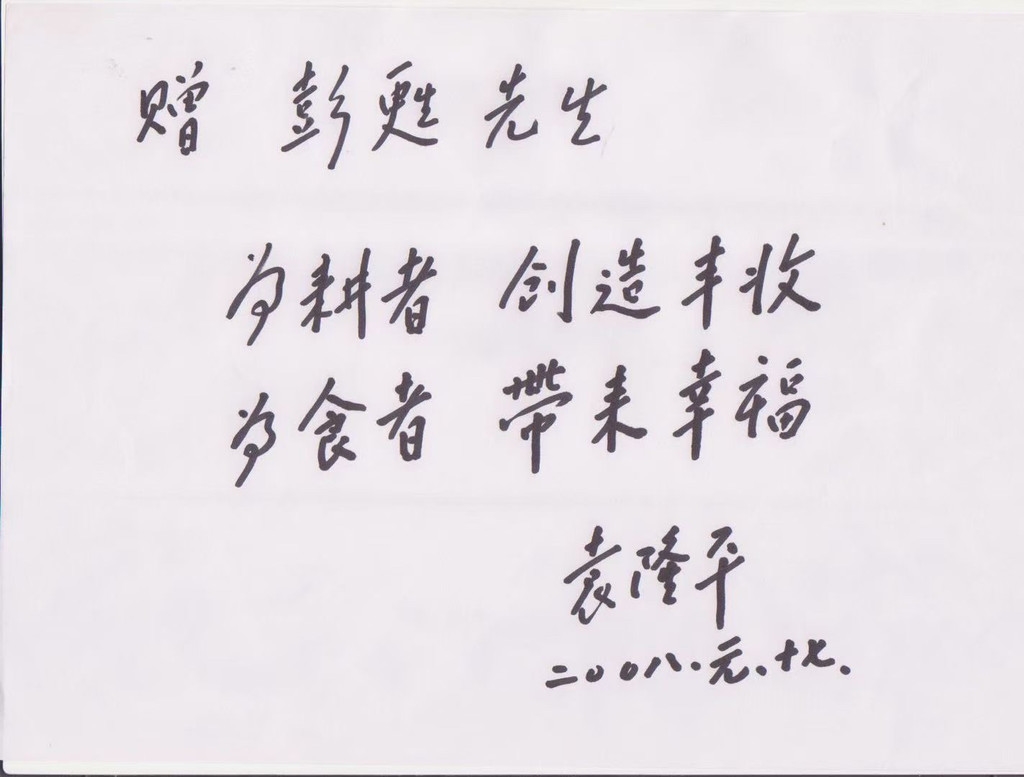 赠 彭甦 先生
为耕者 创造丰收
为食者 带来幸福
袁隆平
二〇〇八.元.十七.